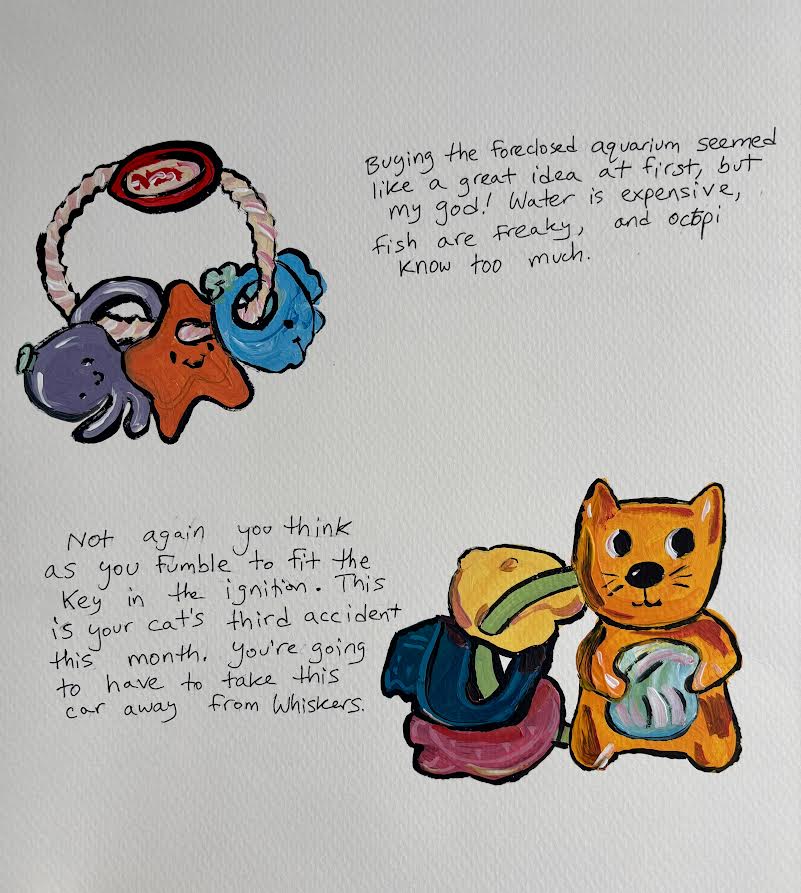 Buying the foreclosed aquarium seemed
like a great idea at first, but
my god! Water is expensive,
fish are freaky, and octopi
know too much.
Not again you think
as you fumble to fit the
key in the ignition. This
is your cat's third accident
this month. You're going
to have to take this
car away from Whiskers.